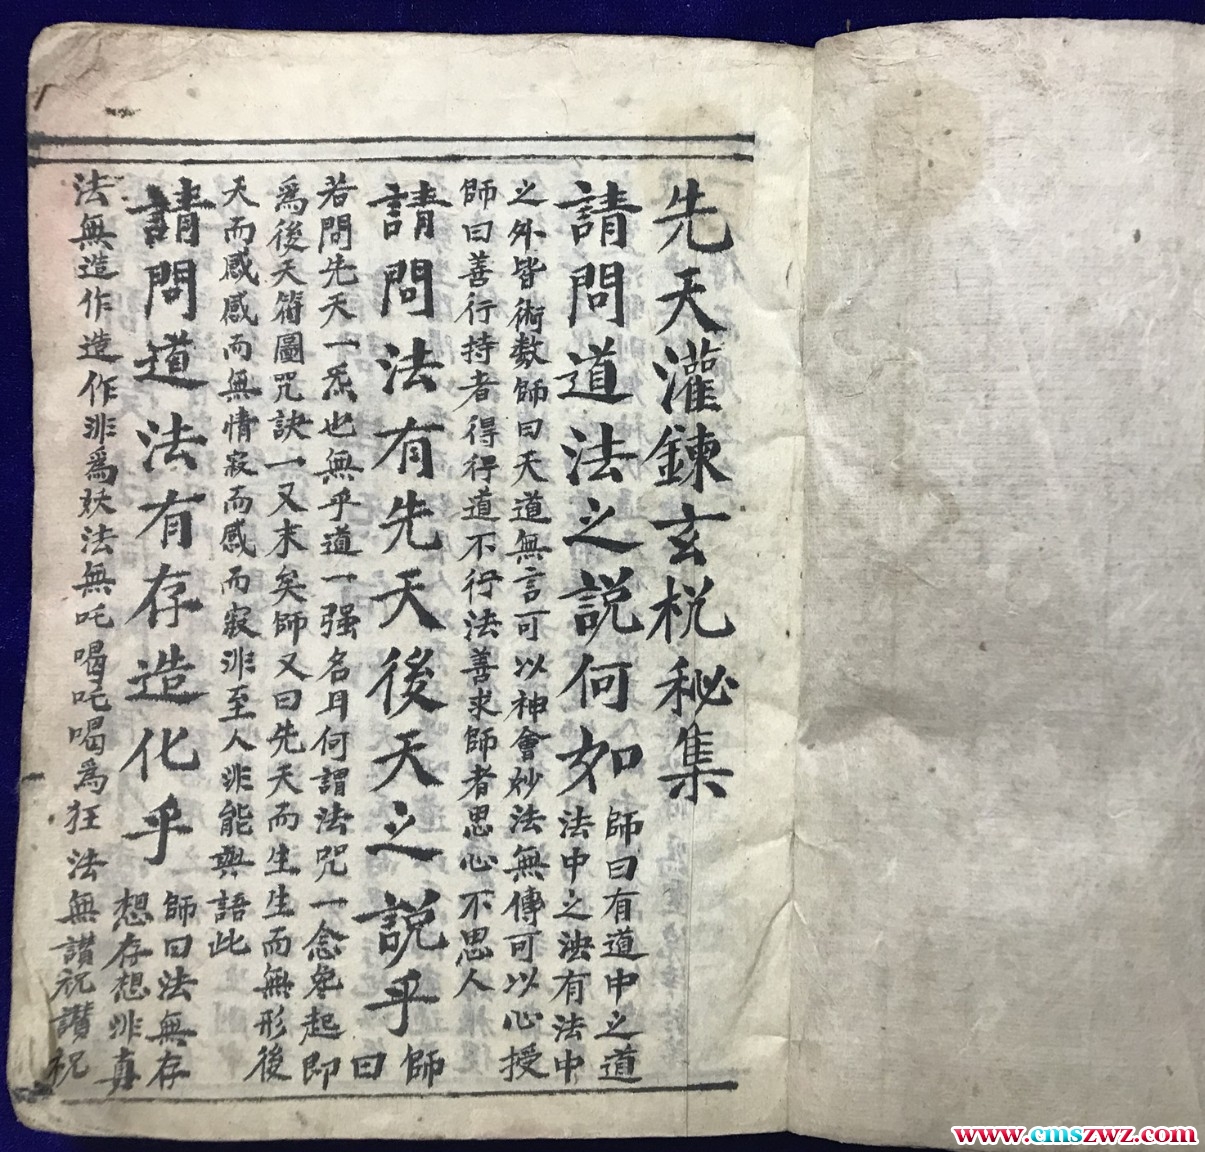 先天灌鍊玄棁秘集
請問道法之説何如
師曰有道中之道
法中之法有法中
之外皆術数師曰天道無言可以神會妙法無傳可以心授
師曰善行持者得行道不行法善求師者思心不思人
請問法有先天後天之説乎
師
曰
若問先天一炁也無乎道一强名耳何謂法咒一念㡬起即
爲後天符圖咒訣一又末矣師又曰先天而生生而無形後
天而感感而無情寂而感而寂非至人非能與語此
請問道法有存造化乎
師曰法無存
想存想非真
法無造作造作非爲妖法無吒喝吒喝爲狂法無讃祝讃祝
www.cmszwz.com